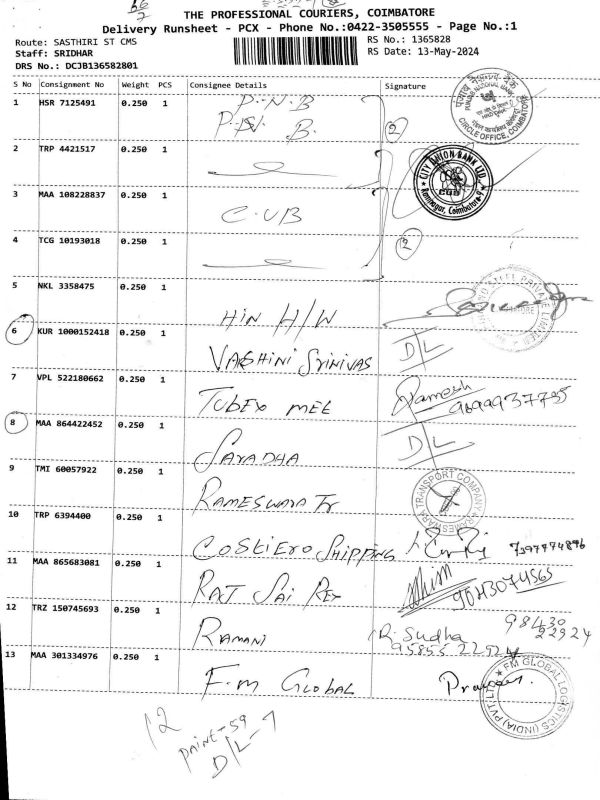 THE PROFESSIONAL COURIERS, COIMBATORE
Delivery Runsheet - PCX - Phone No.:0422-3505555 - Page No.:1
Route: SASTHIRI ST CMS RS No.: 1365828
Staff: SRIDHAR RS Date: 13-May-2024
DRS No.: DCJB136582801
S No Consignment No Weight PCS Consignee Details Signature
1 HSR 7125491 0.250 1 P.N.B
P.N. B. 2
CIRCLE OFFICE, COIMBATORE
2 TRP 4421517 0.250 1
CITY UNION BANK LTD.
CUB
Ramnagar, Coimbatore-9
3 MAA 108228837 0.250 1 C.UB
4 TCG 10193018 0.250 1 2
5 NKL 3358475 0.250 1
HIN H/W
6 KUR 1000152418 0.250 1
VARSHINI SRINIVAS D/L
7 VPL 522180662 0.250 1
TUBEX MEL Ramesh
8 MAA 864422452 0.250 1
SARADHA D/L
9 TMI 60057922 0.250 1
RAMESWARA Tr
TRANSPORT COMPANY
10 TRP 6394400 0.250 1
SHIPPING
11 MAA 865683081 0.250 1
RAJ SAI
9043074565
12 TRZ 150745693 0.250 1
RAMANI R. Sudha
98430
22924
95855 22924
13 MAA 301334976 0.250 1
F.M GLOBAL
FM GLOBAL LOGISTICS (INDIA) PVT. LTD.
12
D/L - 7